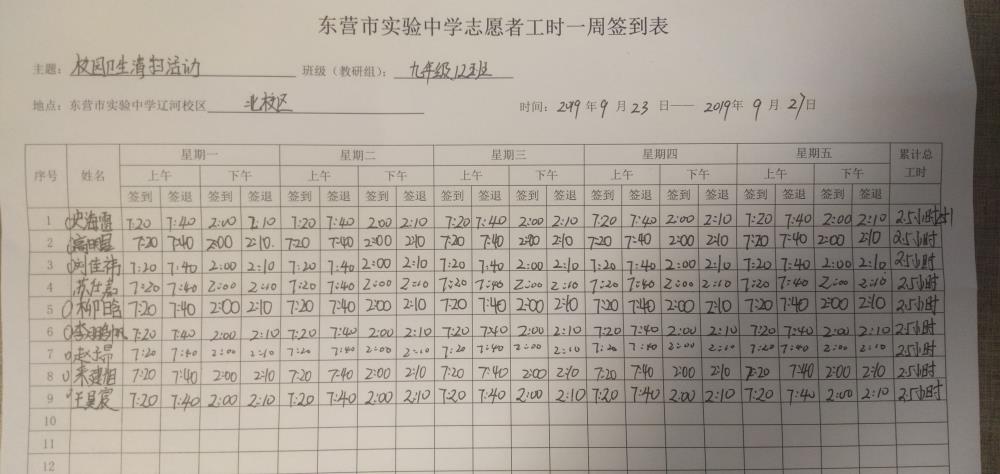 东营市实验中学志愿者工时一周签到表
主题：校园卫生清扫活动 班级（教研组）：九年级12班
地点：东营市实验中学辽河校区 北校区 时间：2019年9月23日——2019年9月27日
序号 姓名 星期一 星期二 星期三 星期四 星期五 累计总工时
上午 下午 上午 下午 上午 下午 上午 下午 上午 下午
签到 签退 签到 签退 签到 签退 签到 签退 签到 签退 签到 签退 签到 签退 签到 签退 签到 签退 签到 签退
1 史海 7:20 7:40 2:00 2:10 7:20 7:40 2:00 2:10 7:20 7:40 2:00 2:10 7:20 7:40 2:00 2:10 7:20 7:40 2:00 2:10 2.5小时
2 7:20 7:40 2:00 2:10 7:20 7:40 2:00 2:10 7:20 7:40 2:00 2:10 7:20 7:40 2:00 2:10 7:20 7:40 2:00 2:10 2.5小时
3 刘佳祎 7:20 7:40 2:00 2:10 7:20 7:40 2:00 2:10 7:20 7:40 2:00 2:10 7:20 7:40 2:00 2:10 7:20 7:40 2:00 2:10 2.5小时
4 苏 7:20 7:40 2:00 2:10 7:20 7:40 2:00 2:10 7:20 7:40 2:00 2:10 7:20 7:40 2:00 2:10 7:20 7:40 2:00 2:10 2.5小时
5 柳 7:20 7:40 2:00 2:10 7:20 7:40 2:00 2:10 7:20 7:40 2:00 2:10 7:20 7:40 2:00 2:10 7:20 7:40 2:00 2:10 2.5小时
6 李 7:20 7:40 2:00 2:10 7:20 7:40 2:00 2:10 7:20 7:40 2:00 2:10 7:20 7:40 2:00 2:10 7:20 7:40 2:00 2:10 2.5小时
7 赵 7:20 7:40 2:00 2:10 7:20 7:40 2:00 2:10 7:20 7:40 2:00 2:10 7:20 7:40 2:00 2:10 7:20 7:40 2:00 2:10 2.5小时
8 7:20 7:40 2:00 2:10 7:20 7:40 2:00 2:10 7:20 7:40 2:00 2:10 7:20 7:40 2:00 2:10 7:20 7:40 2:00 2:10 2.5小时
9 王昊宸 7:20 7:40 2:00 2:10 7:20 7:40 2:00 2:10 7:20 7:40 2:00 2:10 7:20 7:40 2:00 2:10 7:20 7:40 2:00 2:10 2.5小时
10
11
12